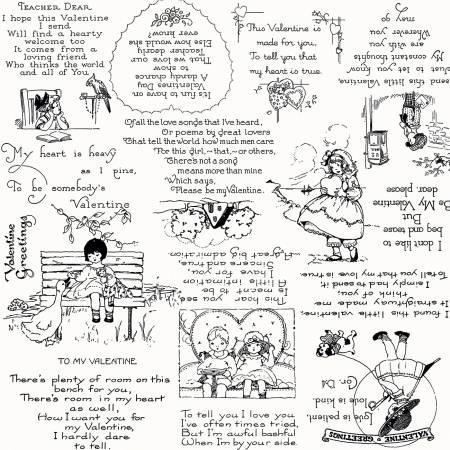 TEACHER DEAR,
I hope this Valentine
I send
Will find a hearty
welcome too
It comes from a
loving friend
Who thinks the world
and all of You
It's fun to have on
Valentines Day
A dandy chance
to say
That we love our
Teacher dearly
Else how would she
ever know?
This Valentine is
made for you,
To tell you that
my heart is true.
send this little Valentine,
Just to let you know
My constant thoughts
are with you
Wherever you
may go
Of all the love songs that I've heard,
Or poems by great lovers
That tell the world how much men care
For this girl,-that,-or others,
There's not a song
means more than mine
Which says,
Please be my Valentine.
My heart is heavy
as I pine,
To be somebody's
Valentine
I don't like to
beg and tease
But
Be My Valentine
dear, please
Valentine
Greetings
This heart you see
Is meant to be
A little intimation
I have for you,
Sincere and true
A great big admiration.
I found this little valentine,
It straightway made me
think of you,
I simply had to send it
To tell you that my love is true.
TO MY VALENTINE
There's plenty of room on this
bench for you,
There's room in my heart
as well,
How I want you for
my Valentine,
I hardly dare
to tell.
To tell you I love you
I've often times tried,
But I'm awful bashful
When I'm by your side.
Love is patient,
Love is kind.
VALENTINE GREETINGS